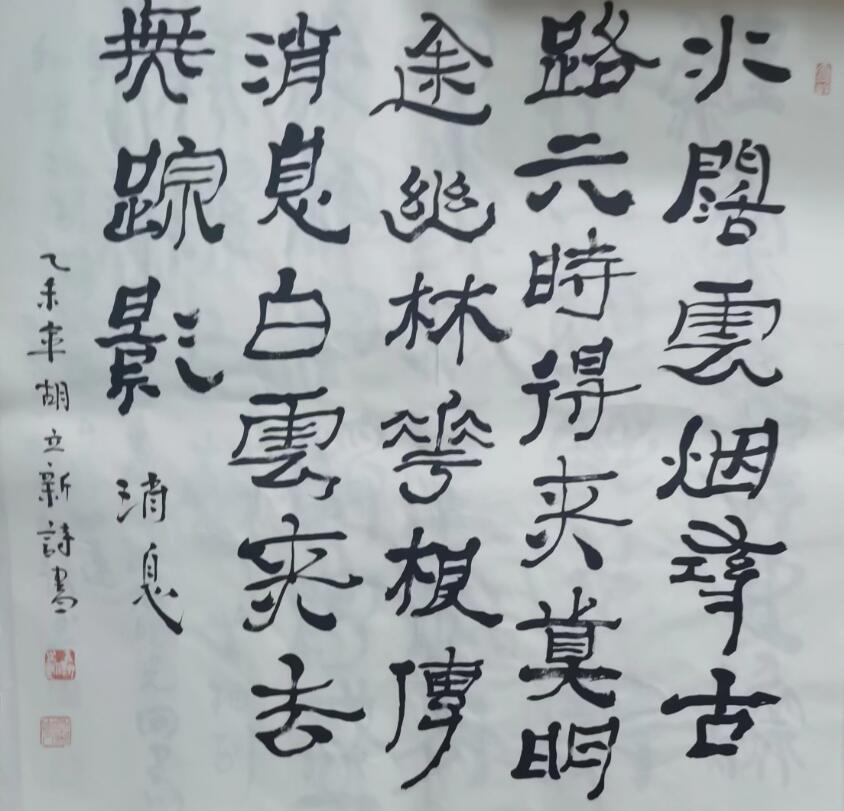 水闊雲烟尋古
路六時得来莫明
途幽林華梗傳
消息白雲来去
無踪影 消息
乙未年胡立新詩書